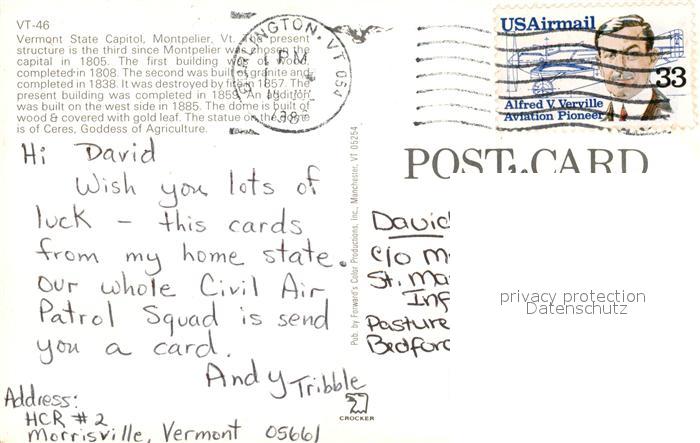 VT-46
Vermont State Capitol, Montpelier, Vt. The present
structure is the third since Montpelier was chosen the
capital in 1805. The first building was of wood,
completed in 1808. The second was built of granite and
completed in 1838. It was destroyed by fire in 1857. The
present building was completed in 1859. An addition
was built on the west side in 1885. The dome is built of
wood & covered with gold leaf. The statue on the dome
is of Ceres, Goddess of Agriculture.
BURLINGTON, VT 054
PM
USAirmail
33
Alfred V. Verville
Aviation Pioneer
POST CARD
Hi David
Wish you lots of
luck - this cards
from my home state.
Our whole Civil Air
Patrol Squad is send
you a card.
Andy Tribble
Address:
HCR #2
Morrisville, Vermont 05661
Pub. by Forward's Color Productions, Inc., Manchester, VT 05254
CROCKER
David
c/o M
St. Ma
Inf
Pasture
Bedford
privacy protection
Datenschutz